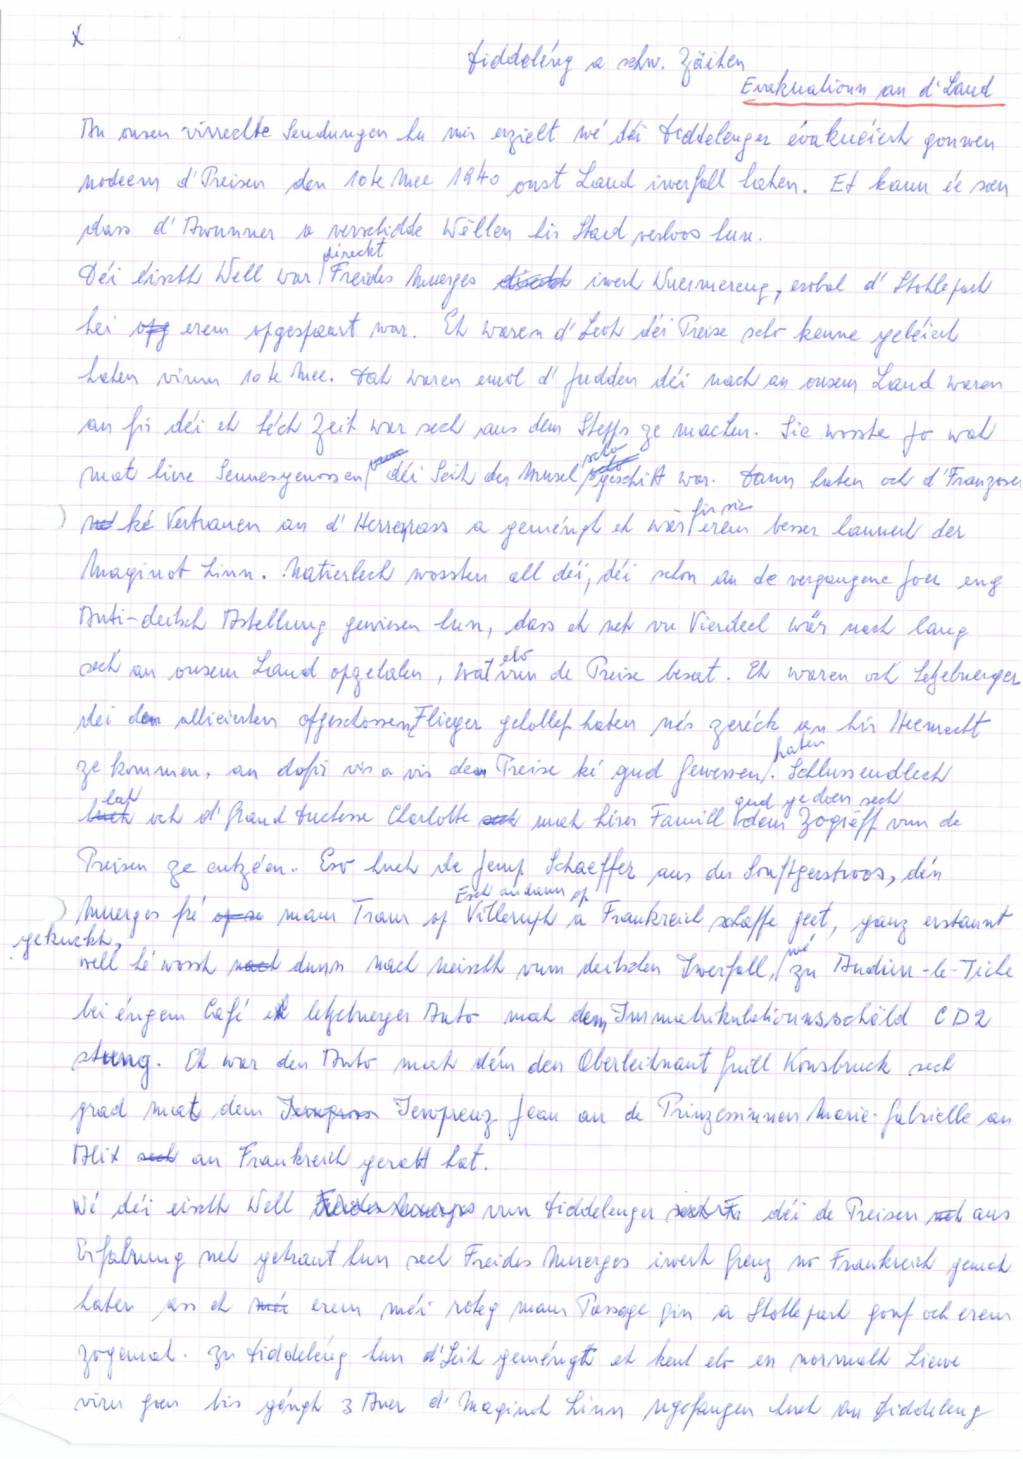 X
Diddeléng a schw. Zäiten
Evakuatioun an d'Land
An onsen virrechte Sendungen hu mir erzielt wé déi Diddelenger évakuéiert gouwen
nodeem d'Preisen den 10te Mee 1940 onst Land iwerfall haten. Et kann ee soen
dass d'Awunner a verschidde Wellen hir Staed verloos hun.
direckt
Déi éischt Well war Freides Muerges iwert Wuermereng, esobal d'Stohlepaart
hei erem opgespaart war. Et waren d'Leit déi Preise scho kenne geléiert
haten virum 10te Mee. Dat waren emol d'Judden déi nach an onsem Land waren
an fir déi et héch Zeit war sech aus dem Steps ze machen. Sie wosste jo wat
scho
mat hire Sennesgenossen déi Seit der Musel geschitt war. Dann haten och d'Franzosen
fir si
ké Vertrauen an d'Herregrass a geméngt et wär erem besser lannert der
Maginot Linn. Natierlech wossten all déi, déi schon an de vergangene Joer eng
Anti-deitsch Astellung gewisen hun, dass et net vu Virdeel wär nach lang
elo
sech an onsem Land opzehalen, wat vun de Preise besat. Et waren och Letzebuerger
déi den alliéierten ofgeschossen Flieger gehollef haten nés zeréck an hir Heemecht
haten
ze kommen, an dofir vis a vis dem Preise ké gud Gewessen. Schlussendlech
hat gud gedoen sech
och d'Grand Duchesse Charlotte mat hirer Famill dem Zogrëff vun de
Preisen ze entzéen. Eso huet de Jemp Schaeffer aus der Sonftgerstroos, dén
Esch an dann op
Muerges fré mam Tram op Villerupt a Frankreich schaffe geet, ganz erstaunt
gekuckt,
wé
well hé wosst dunn nach neischt vum deitschen Iwerfall, zu Audun-le-Tiche
bei éngem Café et letzebuerger Auto mat dem Immatrikulatiounsschëld CD2
stung. Et war den Auto mat dém den Oberleitnant Guill Konsbruck sech
grad mat dem Ierwprenz Jean an de Prinzessinnen Marie-Gabrielle an
Alix an Frankreich gerett hat.
Wé déi eischt Well vun Diddelenger déi de Preisen aus
Erfahrung net getraut hun sech Freides Muerges iwert Grenz no Frankreich gemat
haten ass et erem méi roueg mam Passage gin a Stollepart gouf och erem
zogemat. Zu Diddeléng hun d'Leit geméngt et kent elo en normalt Liewe
viru goen bis géngt 3 Auer d'Maginot Linn ugefangen huet an Diddeleng